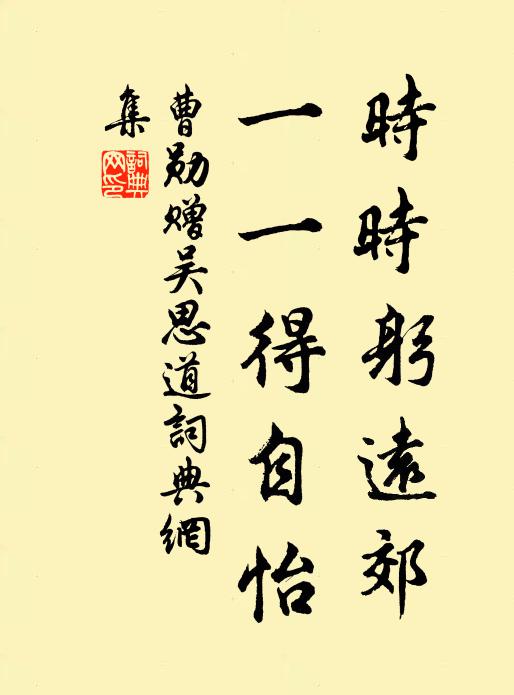 時時躬遠郊
一一得自怡
曹勛贈吴思道詞典網
集
詞典網印